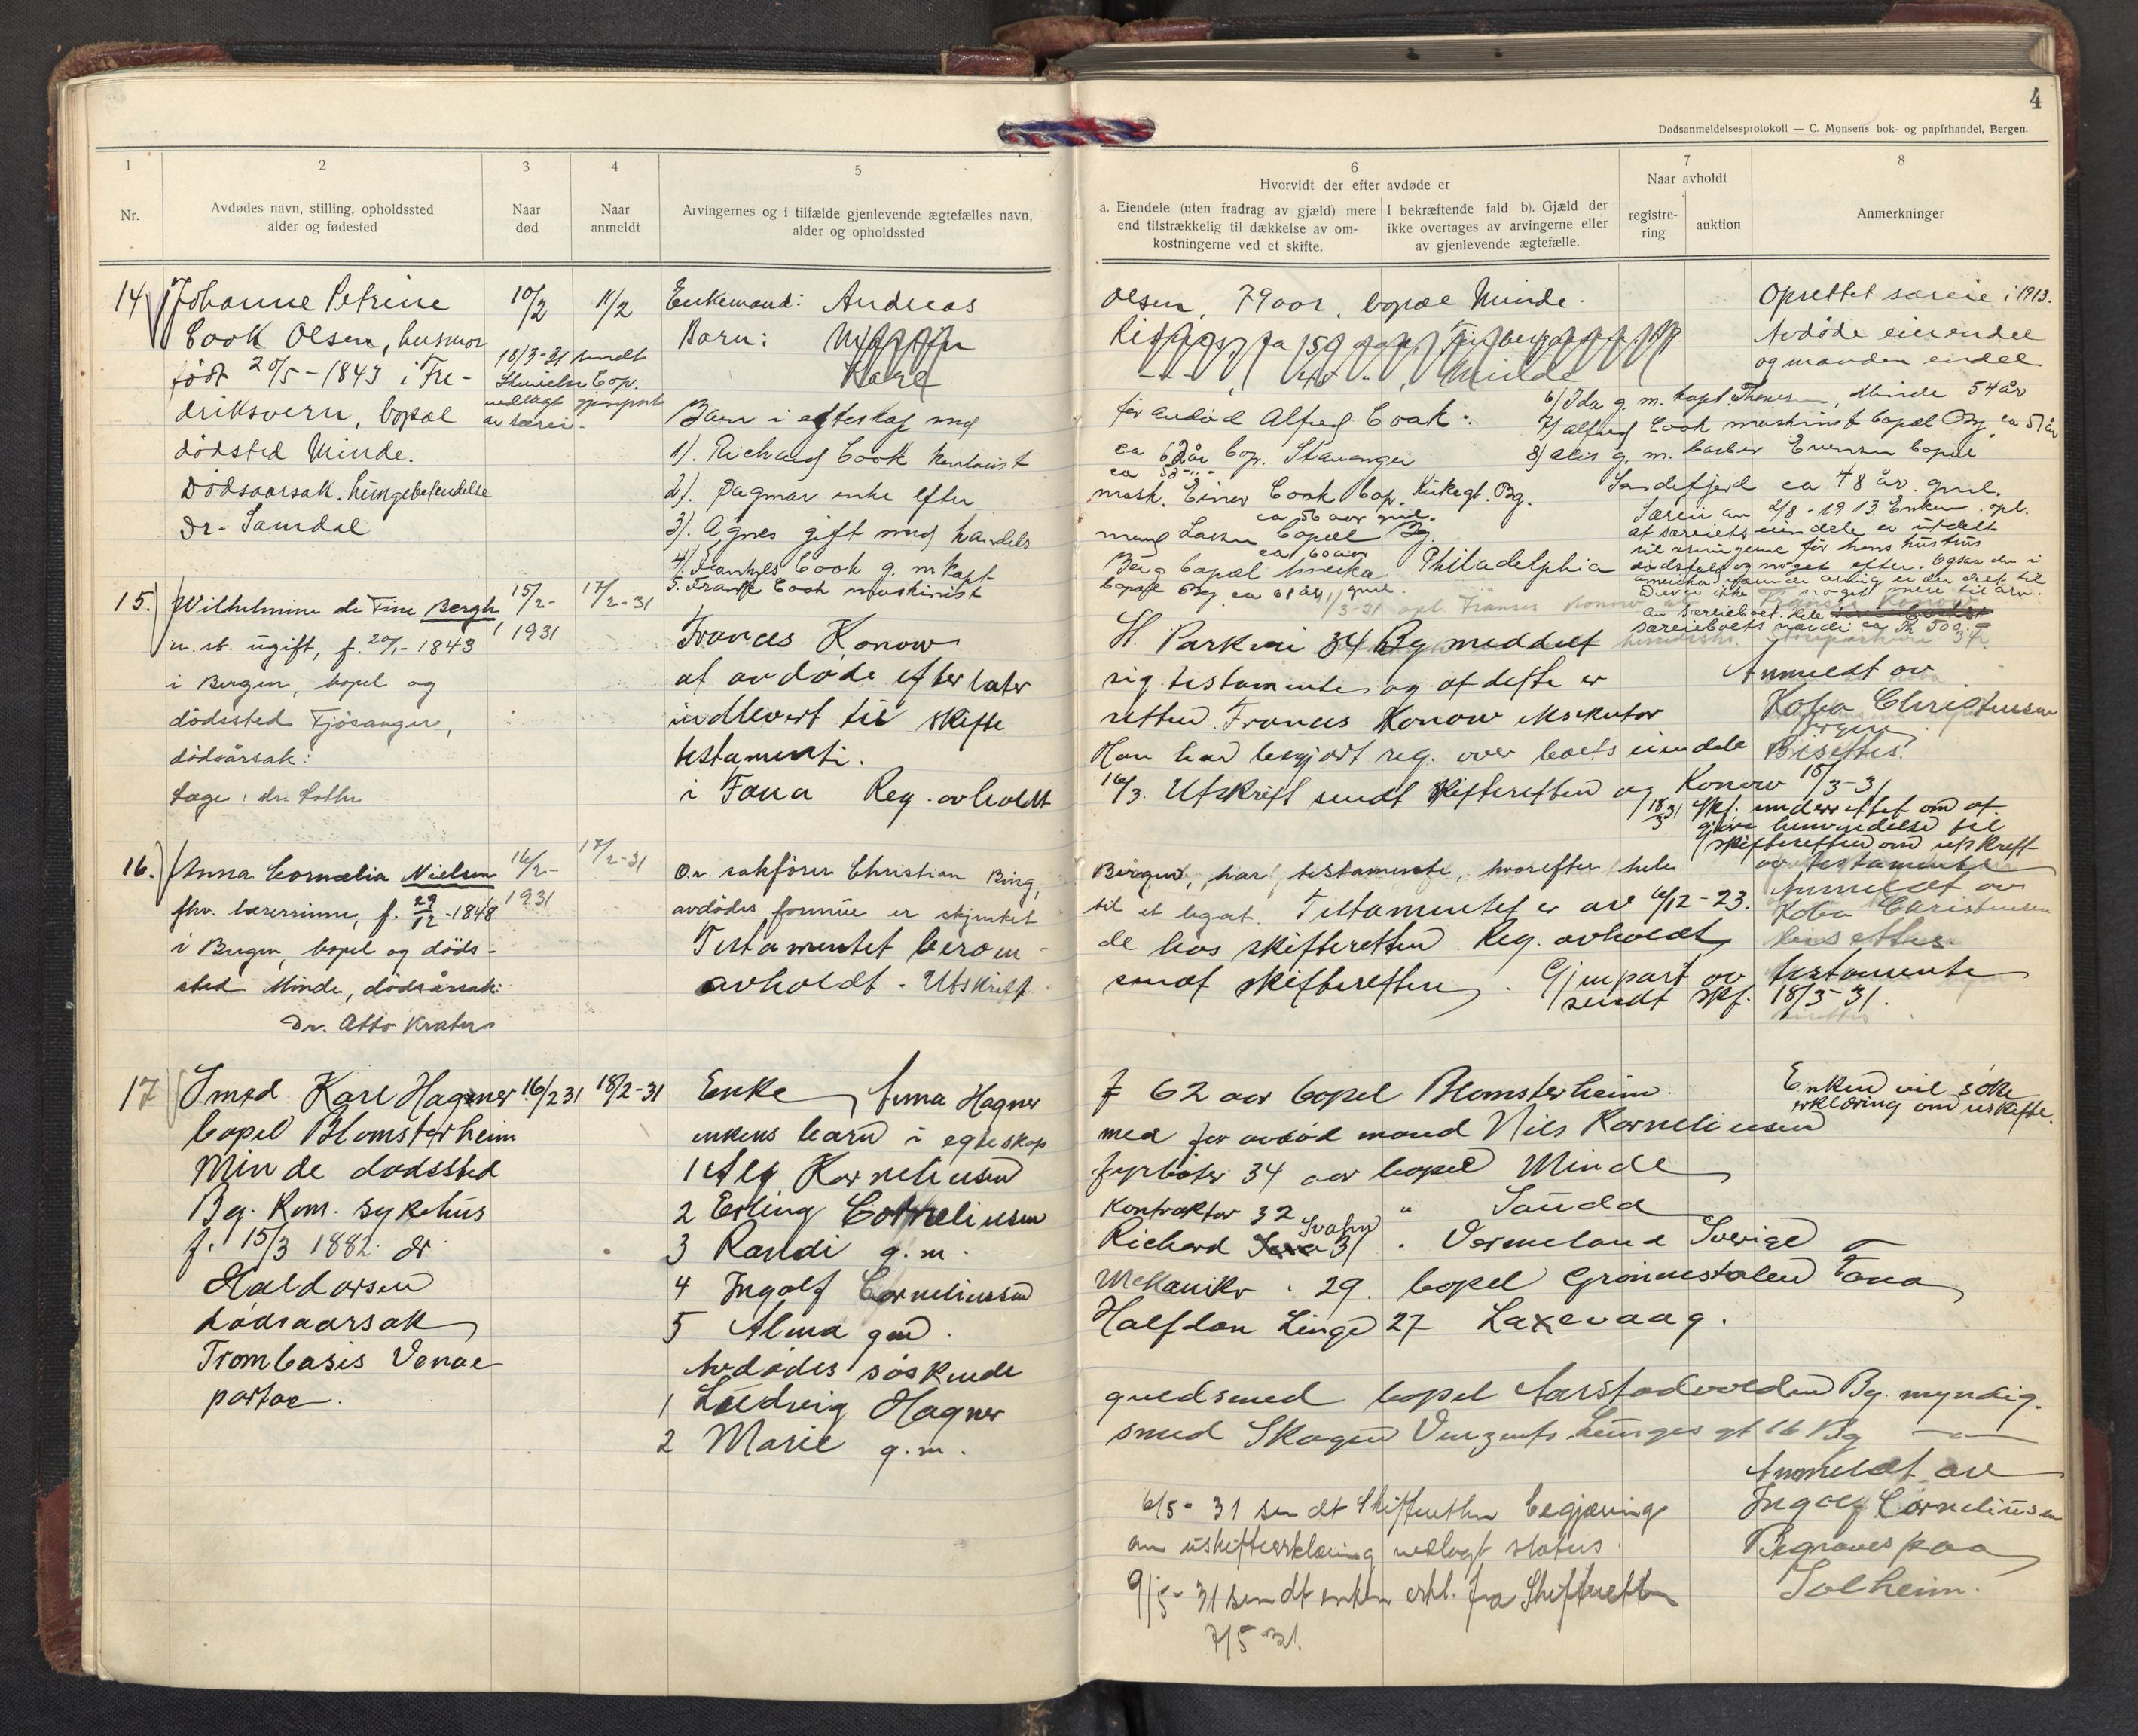 4
Dødsanmeldelsesprotokoll — C. Monsens bok- og papirhandel, Bergen.
1
Nr.
2
Avdødes navn, stilling, opholdssted
alder og fødested
3
Naar
død
4
Naar
anmeldt
5
Arvingernes og i tilfælde gjenlevende ægtefælles navn,
alder og opholdssted
6
Hvorvidt der efter avdøde er
a. Eiendele (uten fradrag av gjæld) mere
end tilstrækkelig til dækkelse av om-
kostningerne ved et skifte.
I bekræftende fald b). Gjæld der
ikke overtages av arvingerne eller
av gjenlevende ægtefælle.
7
Naar avholdt
registre-
ring
auktion
8
Anmerkninger
14
Johanne Petrine
Cook Olsen, husmor
født 20/5-1843 i Fre-
driksvern, bopæl
dødsted Minde.
Dødsaarsak. lungebetendelse
Dr. Samdal
10/2
11/2
18/3-31 sendt
Enkemand: Andreas
Barn:
Kare
Barn i egteskap med
1). Richard Cook
2). Dagmar enke efter
3). Agnes gift med handels
4). Cook g. m kapt-
5. Frank Cook maskinist
Olsen, 79 aar, bopæl Minde.
Minde
før avdød Alfred Cook:
ca 62 år bop. Stavanger
mask. Einer Cook bop. Kirkegt. Bg.
ca 56 aar
mand Larsen bopæl Bg.
ca 60 aar
Berg bopæl Amerika Philadelphia
bopæl Bg. ca 61 år
6/ Ida g. m. kapt. Thomesen, Minde 54 år
7/ Alfred Cook maskinist bopæl Bg. ca 51 år
8/ Alis g. m. barber Evensen bopæl
Sandefjord ca 48 år. gml.
Særeie av 2/8-1913. Enkem. opl.
at særeiets eiendele er utdelt
til arvingerne før hans hustrus
dødsfald og noget efter. Også den i
Oprettet særeie i 1913.
Avdøde eier endel
og manden endel
15.
Wilhelmine de Fine Bergh
u. st. ugift, f. 20/1-1843
i Bergen, bopel og
dödssted Fjösanger,
dödsårsak:
Læge: dr.
15/2-
1931
17/2-31
Frances Konow
at avdøde efterlater
indlevert til skifte
testamenti.
i Fana Reg. avholdt
St. Parkvei 34 Bg meddelt
sig testamente og at dette er
retten. Frances Konow eksekutor
Han har begjært reg. over boets eiendele
16/3. Utskrift sendt skifteretten og Konow 18/3-31
Anmeldt av
Koba Christensen
Bergen
Bisettes!
18/3 31 skf. underrettet om at
gjøre henvendelse til
skifteretten om utskrift
av testamente
16.
Anna Cornelia Nielsen
fhv. lærerinne, f. 29/12-1848
i Bergen, bopel og döds-
sted Minde, dödsårsak:
Dr. Otto
16/2-
1931
17/2-31
O.r. sakförer Christian Bing,
avdödes formue er skjenket
Testamentet beroen-
avholdt - Utskrift
Bergen, har testamente, hvorefter hele
til et legat. Testamentet er av 6/12-23.
de hos skifteretten. Reg. avholdt
sendt skifteretten. Gjenpart av testamente
sendt skf. 18/3-31.
Anmeldt av
Koba Christensen
bisettes
17
Smed Karl Hagner
bopel Blomsterheim
Minde dødssted
Bg. Kom. sykehus
f. 15/3 1882. dr
Haldorsen
dødsaarsak
Trombosis Venae
portae.
16/2 31
18/2-31
Enke Anna Hagner
enkens barn i egteskap
1 Alf Korneliusen
2 Erling Corneliusen
3 Randi g.m.
4 Ingolf Corneliussen
5 Alma gm.
Avdødes søskende
1 Ludvig Hagner
2 Marie g.m.
f 62 aar bopel Blomsterheim.
med før avdød mand Nils Korneliusen
fyrbøter 34 aar bopel Minde
Kontraktør 32 " Sauda
Richard Svahn 31 . Vermeland Sverige
Mekaniker . 29. bopel Grønnestølen Fana
Halfdan Linge 27 Laxevaag.
guldsmed bopel Aarstadvolden Bg. myndig.
smed Skagen Vinzents Lunges gt 16 Bg —"—
Enken vil søke
erklæring om uskifte.
Anmeldt av
Ingolf Corneliusen
Begraves paa
Solheim.
6/5-31 sendt Skifteretten begjæring
om uskifteerklæring vedlagt status
9/5-31 sendt enken erkl. fra Skifteretten
7/5 31.